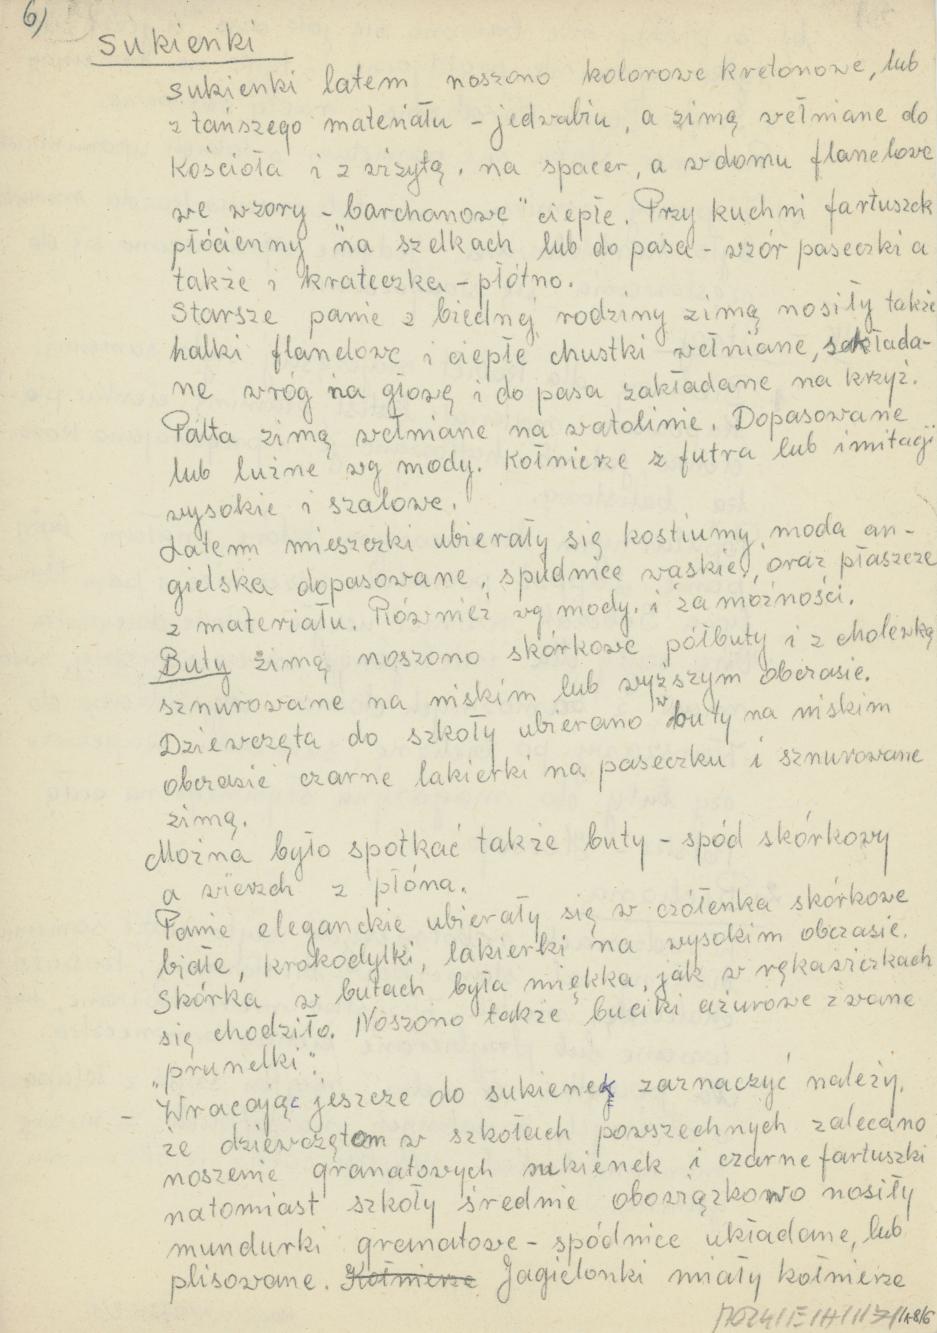 6)
Sukienki
sukienki latem noszono kolorowe kretonowe, lub
z tańszego materiału - jedwabiu, a zimą wełniane do
Kościoła i z wizytą, na spacer, a w domu flanelowe
we wzory - barchanowe" ciepłe. Przy kuchni fartuszek
płócienny na szelkach lub do pasa - wzór paseczki a
także i krateczka - płótno.
Starsze panie z biednej rodziny zimą nosiły także
halki flanelowe i ciepłe chustki wełniane, składa-
ne wróg na głowę i do pasa zakładane na krzyż.
Palta zimą wełniane na watolinie. Dopasowane
lub luźne wg mody. Kołnierze z futra lub imitacji
wysokie i szalowe.
Latem mieszczki ubierały się kostiumy moda an-
gielska dopasowane, spudnice wąskie, oraz płaszcze
z materiału. Również wg mody. i zamożności.
Buty zimą noszono skórkowe półbuty i z cholewką
sznurowane na niskim lub wyższym obcasie.
Dziewczęta do szkoły ubierano w buty na niskim
obcasie czarne lakierki na paseczku i sznurowane
zimą.
Można było spotkać także buty - spód skórkowy
a wierzch z płóna.
Panie eleganckie ubierały się w czółenka skórkowe
białe, krokodylki, lakierki na wysokim obcasie.
Skórka w butach była miękka, jak w rękawiczkach
się chodziło. Noszono także buciki ażurowe zwane
"prunelki".
- Wracając jeszcze do sukienek zaznaczyć należy,
że dziewczętom w szkołach powszechnych zalecano
noszenie granatowych sukienek i czarne fartuszki
natomiast szkoły średnie obowiązkowo nosiły
mundurki granatowe - spódnice układane, lub
plisowane. Kołnierze Jagielonki miały kołnierze